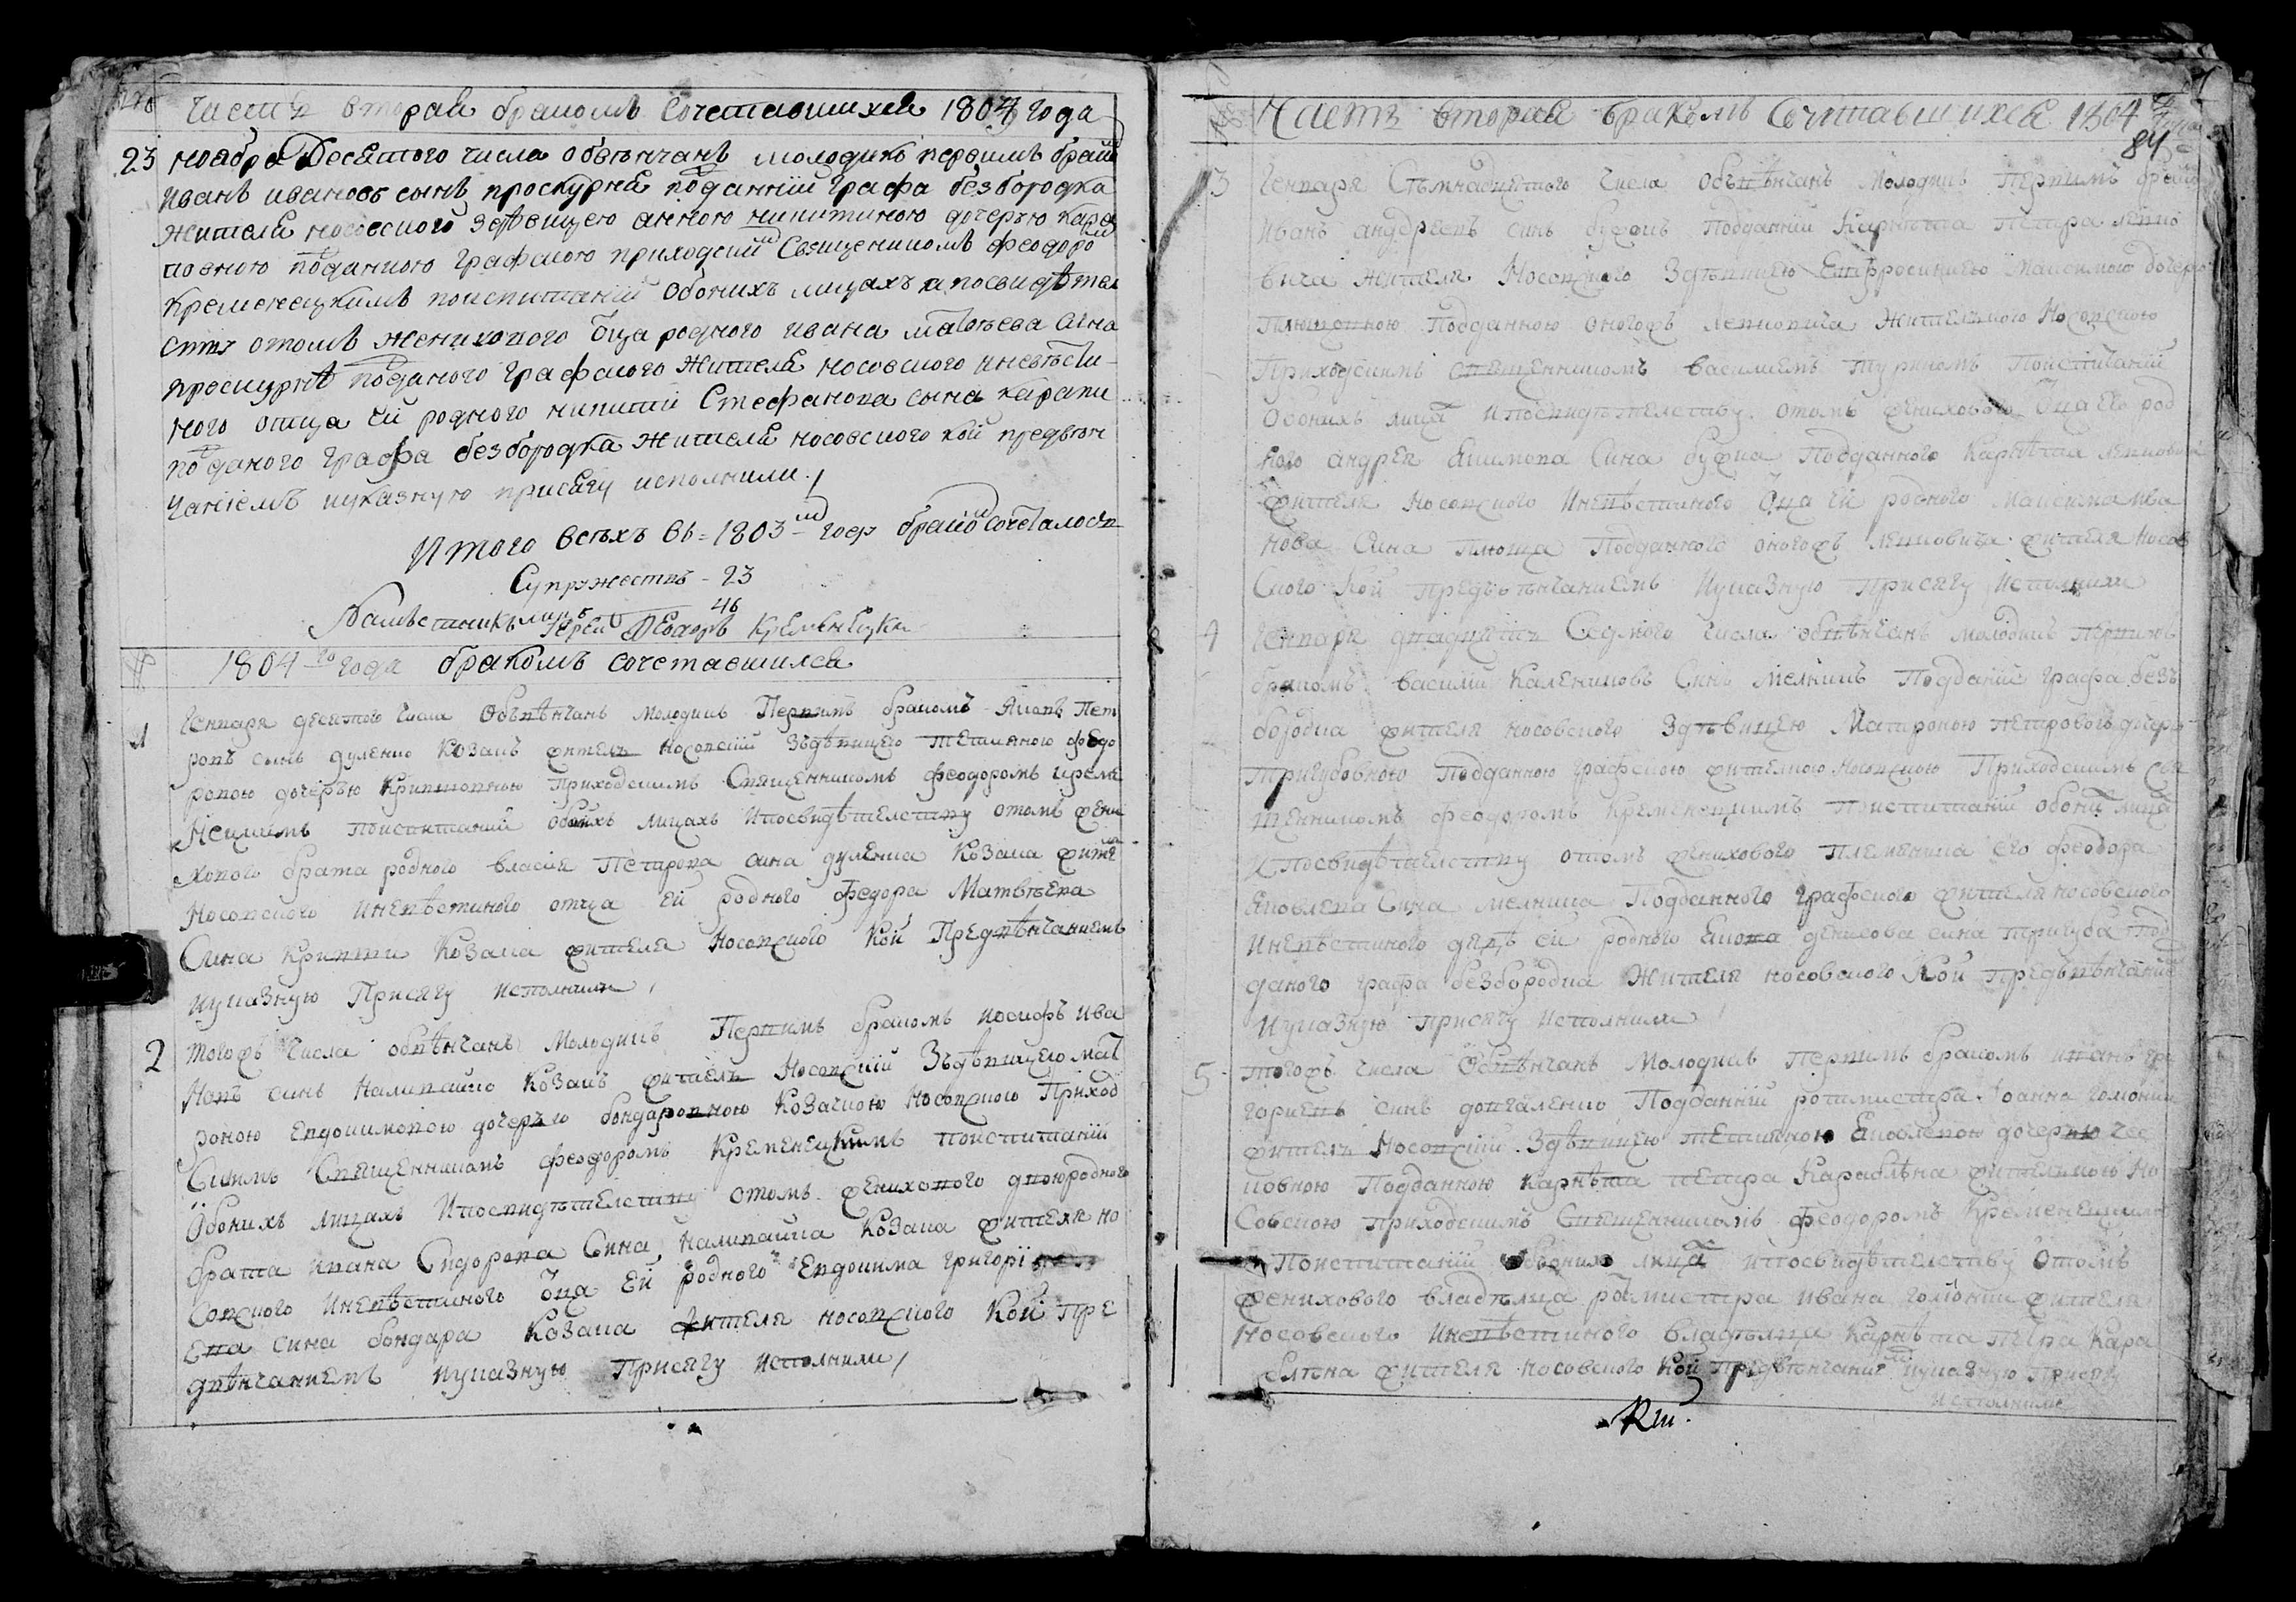 Часть вторая браком сочетавшихся 1803 года
23 ноября Десятого числа обвѣнчанъ молодикъ первимъ бракомъ
иванъ ивановъ сынъ проскурня подданній графа безбородка
житель носовского здѣвицею анною никитиною дочерью кара
повною подданною графскою приходскимъ Священикомъ феодоромъ
кременецкимъ поиспитаніи обоихъ лицахъ ипосвидѣтел
ству отомъ женихового отца родного ивана матвѣева сина
проскурнѣ подданого графского жителя носовского иневѣсти
ного отца ей родного никити Стефанова сына карапи
подданого графа безбородка жителя носовского кои предвѣн
чаніемъ иуказную присягу исполнили
Итого всѣхъ въ 1803 м году бракомъ сочеталось
Супружествъ - 23
46
Намѣстникъ Іерей Феодоръ Кременецки
№ 1804 го года бракомъ сочетавшихся
1 Генваря десятого числа Обвѣнчанъ молодикъ Первимъ бракомъ Яковъ Пет
ровъ сынъ дуленко козакъ житель носовскій Здѣвицею татияною федо
ровою дочерью Крившовною Приходскимъ Священникомъ феодоромъ креме
нецкимъ поиспитаніи обоихъ лицахъ Ипосвидѣтелству отомъ жени
хового брата родного власия Петрова сина дуленка козака жителя
Носовского иневѣстиного отца ей родного федора Матвѣева
Сина кривши козака жителя Носовского кои Предвѣнчаниемъ
иуказную Присягу исполнили
2 тогожъ числа обвѣнчанъ Молодикъ Первимъ бракомъ иосифъ ива
новъ синъ наливайко козакъ житель Носовскій Здѣвицею мат
роною Евдокимовою дочерью бондаровною козачкою Носовского Приход
скимъ Священникомъ феодоромъ Кременецкимъ поиспитаніи
Обоихъ лицахъ Ипосвидѣтелству отомъ женихового двоюродного
брата ивана Сидорова Сина наливайка козака жителя но
совского иневѣстиного отца ей родного Евдокима григорі
ева сина бондара козака жителя носовского кои пре
двѣнчаниемъ иуказную Присягу исполнили
Часть вторая бракомъ Сочитавшихся 1804 года
84
3 Генваря Седмнадцятого числа обвѣнчанъ молодикъ Первимъ бракомъ
иванъ андреевъ синъ буфикъ подданній Карнѣта петра левко
вича жителя Носовского Здѣвицею Евфросиниею Максимою дочерю
плющовною подданною оногожъ левковича жителкою Носовскою
Приходскимъ священникомъ василиемъ Поиспитаніи
обоихъ лицахъ ипосвидѣтелству отомъ женихового отца его род
ного андрея Якимова сина подданного карнѣта левковича
жителя носовского иневѣстиного отца ей родного максима ива
нова Сина плюща подданного оногожъ левковича жителя носов
ского кои предвѣнчаниемъ иуказную присягу исполнили
4 Генваря двадцять Седмого числа обвѣнчанъ молодикъ первимъ
бракомъ василий Калениковъ Синъ мелникъ Подданій графа без
бородка жителя носовского Здѣвицею Матроною петровою дочерю
тригубовною подданною графскою жителкою носовскою Приходскимъ свя
щенникомъ феодоромъ кременецкимъ поиспитаніи обоихъ лицахъ
ипосвидѣтелству отомъ женихового племеника его феодора
Яковлева Сина мелника Подданного графского жителя носовского
иневѣстиного дядѣ ей родного Якова денисова сина тригуба под
даного графа безбородка жителя носовского кои предвѣнчаниемъ
иуказную присягу исполнили
5 тогожъ числа обвѣнчанъ молодикъ первимъ бракомъ иванъ гри
гориевъ синъ довгаленко подданній ротмистра Іоанна
житель Носовскій Здѣвицею татияною Яковлевою дочерью
ковною подданною карнѣта петра Караблѣна жителкою но
совскою приходскимъ Священникомъ Феодоромъ Кременецкимъ
Поиспитаніи обоихъ лицахъ ипосвидѣтелству отомъ
женихового владѣлца ротмистра ивана жителя
носовского иневѣстиного владѣлца карнѣта петра Кара
блѣна жителя носовского кои предвѣнчаниемъ иуказную присягу
исполнили